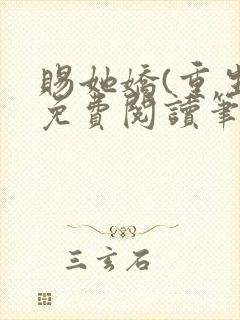 賜她嬌(重生
免費閱讀筆
三玄石